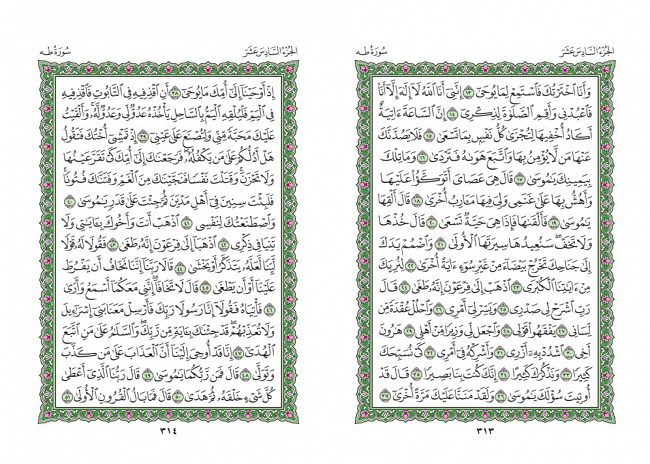 الجزء السادس عشر
سورة طه
وَأَنَا ٱخْتَرْتُكَ فَٱسْتَمِعْ لِمَا يُوحَىٰٓ ١٣ إِنَّنِىٓ أَنَا ٱللَّهُ لَآ إِلَٰهَ إِلَّآ أَنَا۠
فَٱعْبُدْنِى وَأَقِمِ ٱلصَّلَوٰةَ لِذِكْرِىٓ ١٤ إِنَّ ٱلسَّاعَةَ ءَاتِيَةٌ
أَكَادُ أُخْفِيهَا لِتُجْزَىٰ كُلُّ نَفْسٍۭ بِمَا تَسْعَىٰ ١٥ فَلَا يَصُدَّنَّكَ
عَنْهَا مَن لَّا يُؤْمِنُ بِهَا وَٱتَّبَعَ هَوَىٰهُ فَتَرْدَىٰ ١٦ وَمَا تِلْكَ
بِيَمِينِكَ يَٰمُوسَىٰ ١٧ قَالَ هِىَ عَصَاىَ أَتَوَكَّؤُا۟ عَلَيْهَا
وَأَهُشُّ بِهَا عَلَىٰ غَنَمِى وَلِىَ فِيهَا مَـَٔارِبُ أُخْرَىٰ ١٨ قَالَ أَلْقِهَا
يَٰمُوسَىٰ ١٩ فَأَلْقَىٰهَا فَإِذَا هِىَ حَيَّةٌ تَسْعَىٰ ٢٠ قَالَ خُذْهَا
وَلَا تَخَفْ سَنُعِيدُهَا سِيرَتَهَا ٱلْأُولَىٰ ٢١ وَٱضْمُمْ يَدَكَ
إِلَىٰ جَنَاحِكَ تَخْرُجْ بَيْضَآءَ مِنْ غَيْرِ سُوٓءٍ ءَايَةً أُخْرَىٰ ٢٢ لِنُرِيَكَ
مِنْ ءَايَٰتِنَا ٱلْكُبْرَى ٢٣ ٱذْهَبْ إِلَىٰ فِرْعَوْنَ إِنَّهُۥ طَغَىٰ ٢٤ قَالَ
رَبِّ ٱشْرَحْ لِى صَدْرِى ٢٥ وَيَسِّرْ لِىٓ أَمْرِى ٢٦ وَٱحْلُلْ عُقْدَةً مِّن
لِّسَانِى ٢٧ يَفْقَهُوا۟ قَوْلِى ٢٨ وَٱجْعَل لِّى وَزِيرًا مِّنْ أَهْلِى ٢٩ هَٰرُونَ
أَخِى ٣٠ ٱشْدُدْ بِهِۦٓ أَزْرِى ٣١ وَأَشْرِكْهُ فِىٓ أَمْرِى ٣٢ كَىْ نُسَبِّحَكَ
كَثِيرًا ٣٣ وَنَذْكُرَكَ كَثِيرًا ٣٤ إِنَّكَ كُنتَ بِنَا بَصِيرًا ٣٥ قَالَ قَدْ
أُوتِيتَ سُؤْلَكَ يَٰمُوسَىٰ ٣٦ وَلَقَدْ مَنَنَّا عَلَيْكَ مَرَّةً أُخْرَىٰٓ ٣٧
٣١٣
الجزء السادس عشر
سورة طه
إِذْ أَوْحَيْنَآ إِلَىٰٓ أُمِّكَ مَا يُوحَىٰٓ ٣٨ أَنِ ٱقْذِفِيهِ فِى ٱلتَّابُوتِ فَٱقْذِفِيهِ
فِى ٱلْيَمِّ فَلْيُلْقِهِ ٱلْيَمُّ بِٱلسَّاحِلِ يَأْخُذْهُ عَدُوٌّ لِّى وَعَدُوٌّ لَّهُۥ وَأَلْقَيْتُ
عَلَيْكَ مَحَبَّةً مِّنِّى وَلِتُصْنَعَ عَلَىٰ عَيْنِىٓ ٣٩ إِذْ تَمْشِىٓ أُخْتُكَ فَتَقُولُ
هَلْ أَدُلُّكُمْ عَلَىٰ مَن يَكْفُلُهُۥ فَرَجَعْنَٰكَ إِلَىٰٓ أُمِّكَ كَىْ تَقَرَّ عَيْنُهَا
وَلَا تَحْزَنَ وَقَتَلْتَ نَفْسًا فَنَجَّيْنَٰكَ مِنَ ٱلْغَمِّ وَفَتَنَّٰكَ فُتُونًا
فَلَبِثْتَ سِنِينَ فِىٓ أَهْلِ مَدْيَنَ ثُمَّ جِئْتَ عَلَىٰ قَدَرٍ يَٰمُوسَىٰ ٤٠
وَٱصْطَنَعْتُكَ لِنَفْسِى ٤١ ٱذْهَبْ أَنتَ وَأَخُوكَ بِـَٔايَٰتِى وَلَا
تَنِيَا فِى ذِكْرِى ٤٢ ٱذْهَبَآ إِلَىٰ فِرْعَوْنَ إِنَّهُۥ طَغَىٰ ٤٣ فَقُولَا لَهُۥ قَوْلًا
لَّيِّنًا لَّعَلَّهُۥ يَتَذَكَّرُ أَوْ يَخْشَىٰ ٤٤ قَالَا رَبَّنَآ إِنَّنَا نَخَافُ أَن يَفْرُطَ
عَلَيْنَآ أَوْ أَن يَطْغَىٰ ٤٥ قَالَ لَا تَخَافَآ إِنَّنِى مَعَكُمَآ أَسْمَعُ وَأَرَىٰ
٤٦ فَأْتِيَاهُ فَقُولَآ إِنَّا رَسُولَا رَبِّكَ فَأَرْسِلْ مَعَنَا بَنِىٓ إِسْرَٰٓءِيلَ
وَلَا تُعَذِّبْهُمْ قَدْ جِئْنَٰكَ بِـَٔايَةٍ مِّن رَّبِّكَ وَٱلسَّلَٰمُ عَلَىٰ مَنِ ٱتَّبَعَ
ٱلْهُدَىٰٓ ٤٧ إِنَّا قَدْ أُوحِىَ إِلَيْنَآ أَنَّ ٱلْعَذَابَ عَلَىٰ مَن كَذَّبَ
وَتَوَلَّىٰ ٤٨ قَالَ فَمَن رَّبُّكُمَا يَٰمُوسَىٰ ٤٩ قَالَ رَبُّنَا ٱلَّذِىٓ أَعْطَىٰ
كُلَّ شَىْءٍ خَلْقَهُۥ ثُمَّ هَدَىٰ ٥٠ قَالَ فَمَا بَالُ ٱلْقُرُونِ ٱلْأُولَىٰ ٥١
٣١٤